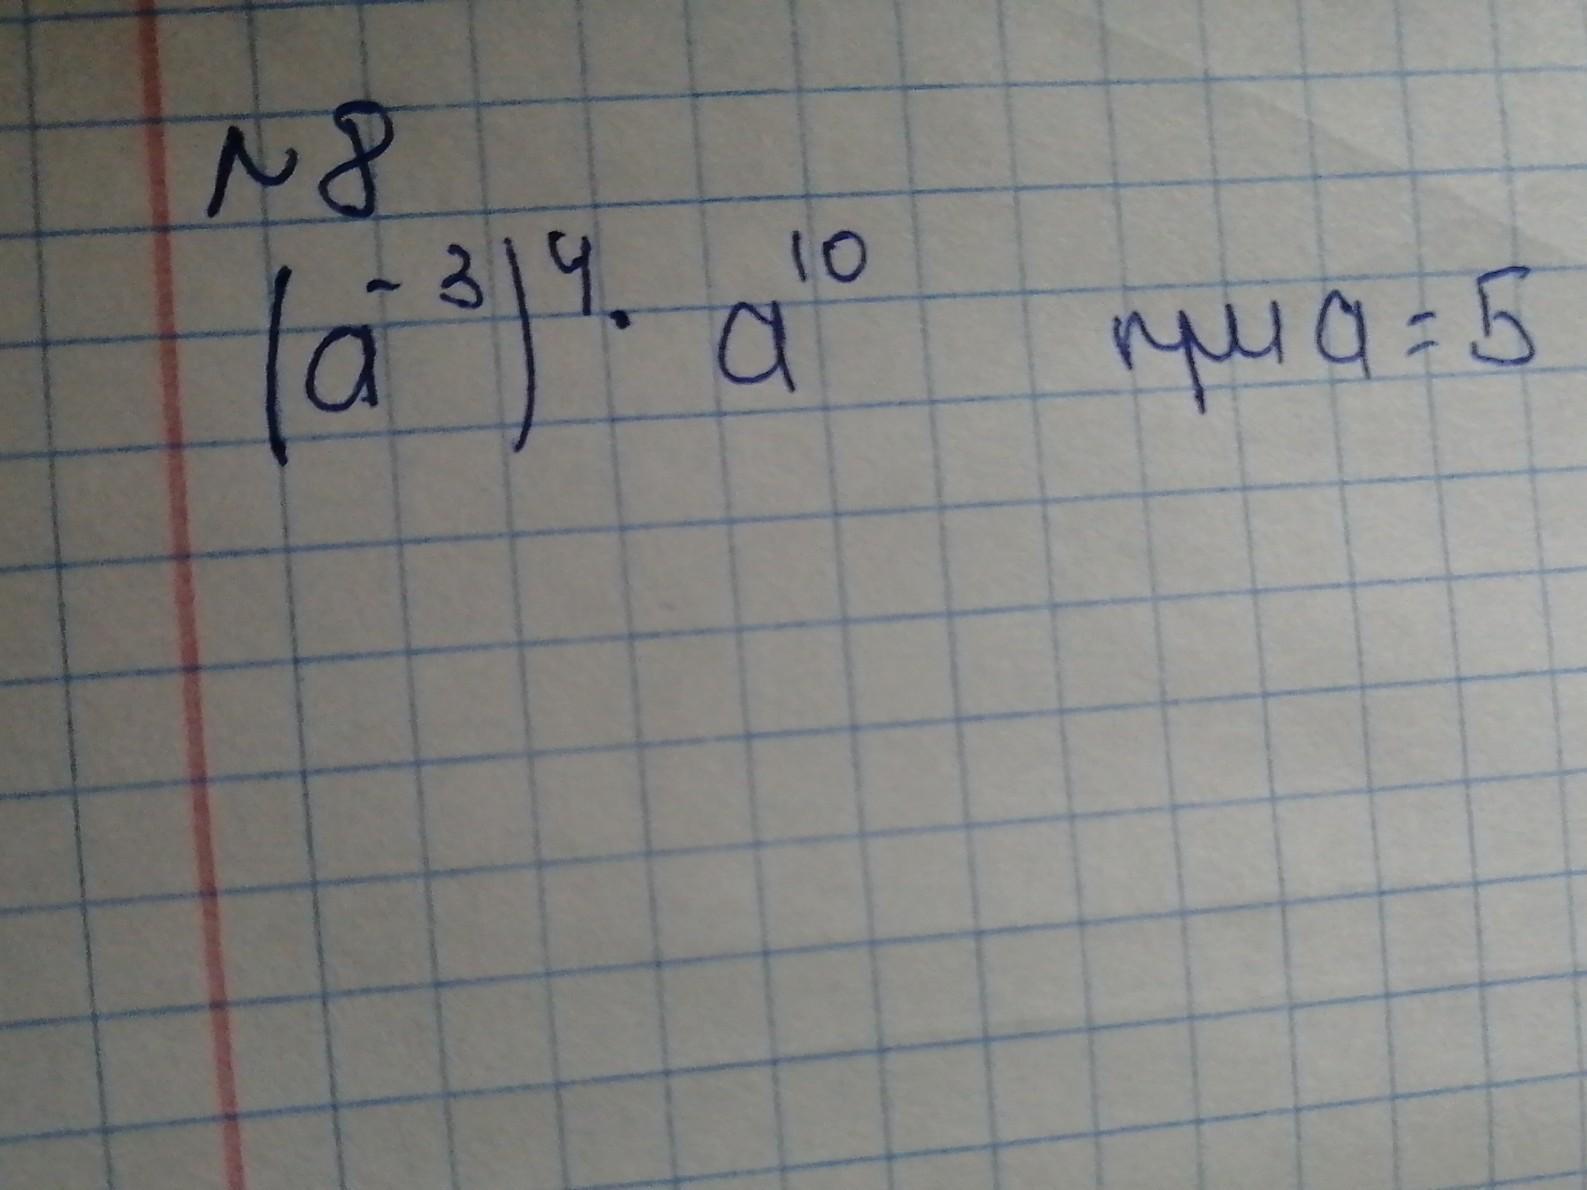 №8
(a⁻³)⁴ · a¹⁰ при a = 5